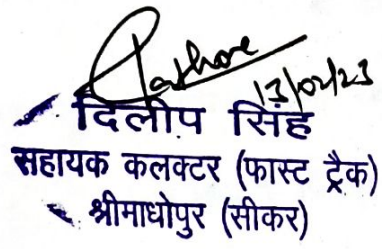 Rathore
13/02/23
दिलीप सिंह
सहायक कलक्टर (फास्ट ट्रैक)
श्रीमाधोपुर (सीकर)